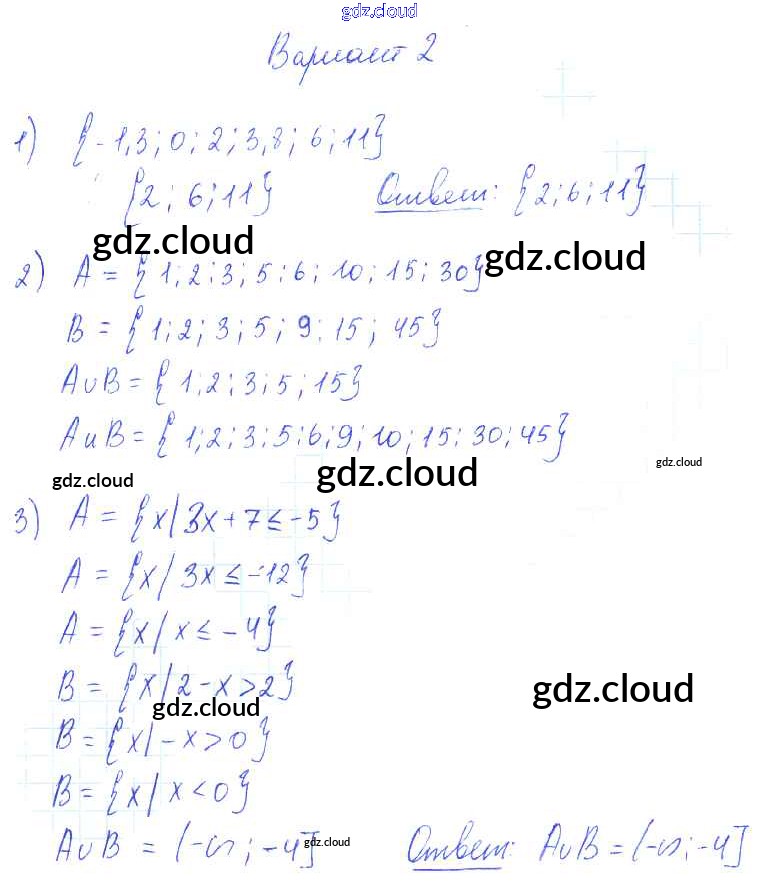 gdz.cloud
Вариант 2
1) {-1,3; 0; 2; 3,8; 6; 11}
{2; 6; 11} Ответ: {2; 6; 11}
gdz.cloud gdz.cloud
2) A = { 1; 2; 3; 5; 6; 10; 15; 30}
B = { 1; 2; 3; 5; 9; 15; 45}
A∪B = { 1; 2; 3; 5; 15}
AиB = { 1; 2; 3; 5; 6; 9; 10; 15; 30; 45}
gdz.cloud gdz.cloud gdz.cloud
3) A = {x/3x + 7 ≤ -5}
A = {x/ 3x ≤ -12}
A = {x/ x ≤ -4}
B = {x/2-x > 2}
gdz.cloud gdz.cloud
B = {x/ -x > 0}
B = {x/ x < 0}
A∪B = (-∞; -4] gdz.cloud Ответ: A∪B = (-∞; -4]